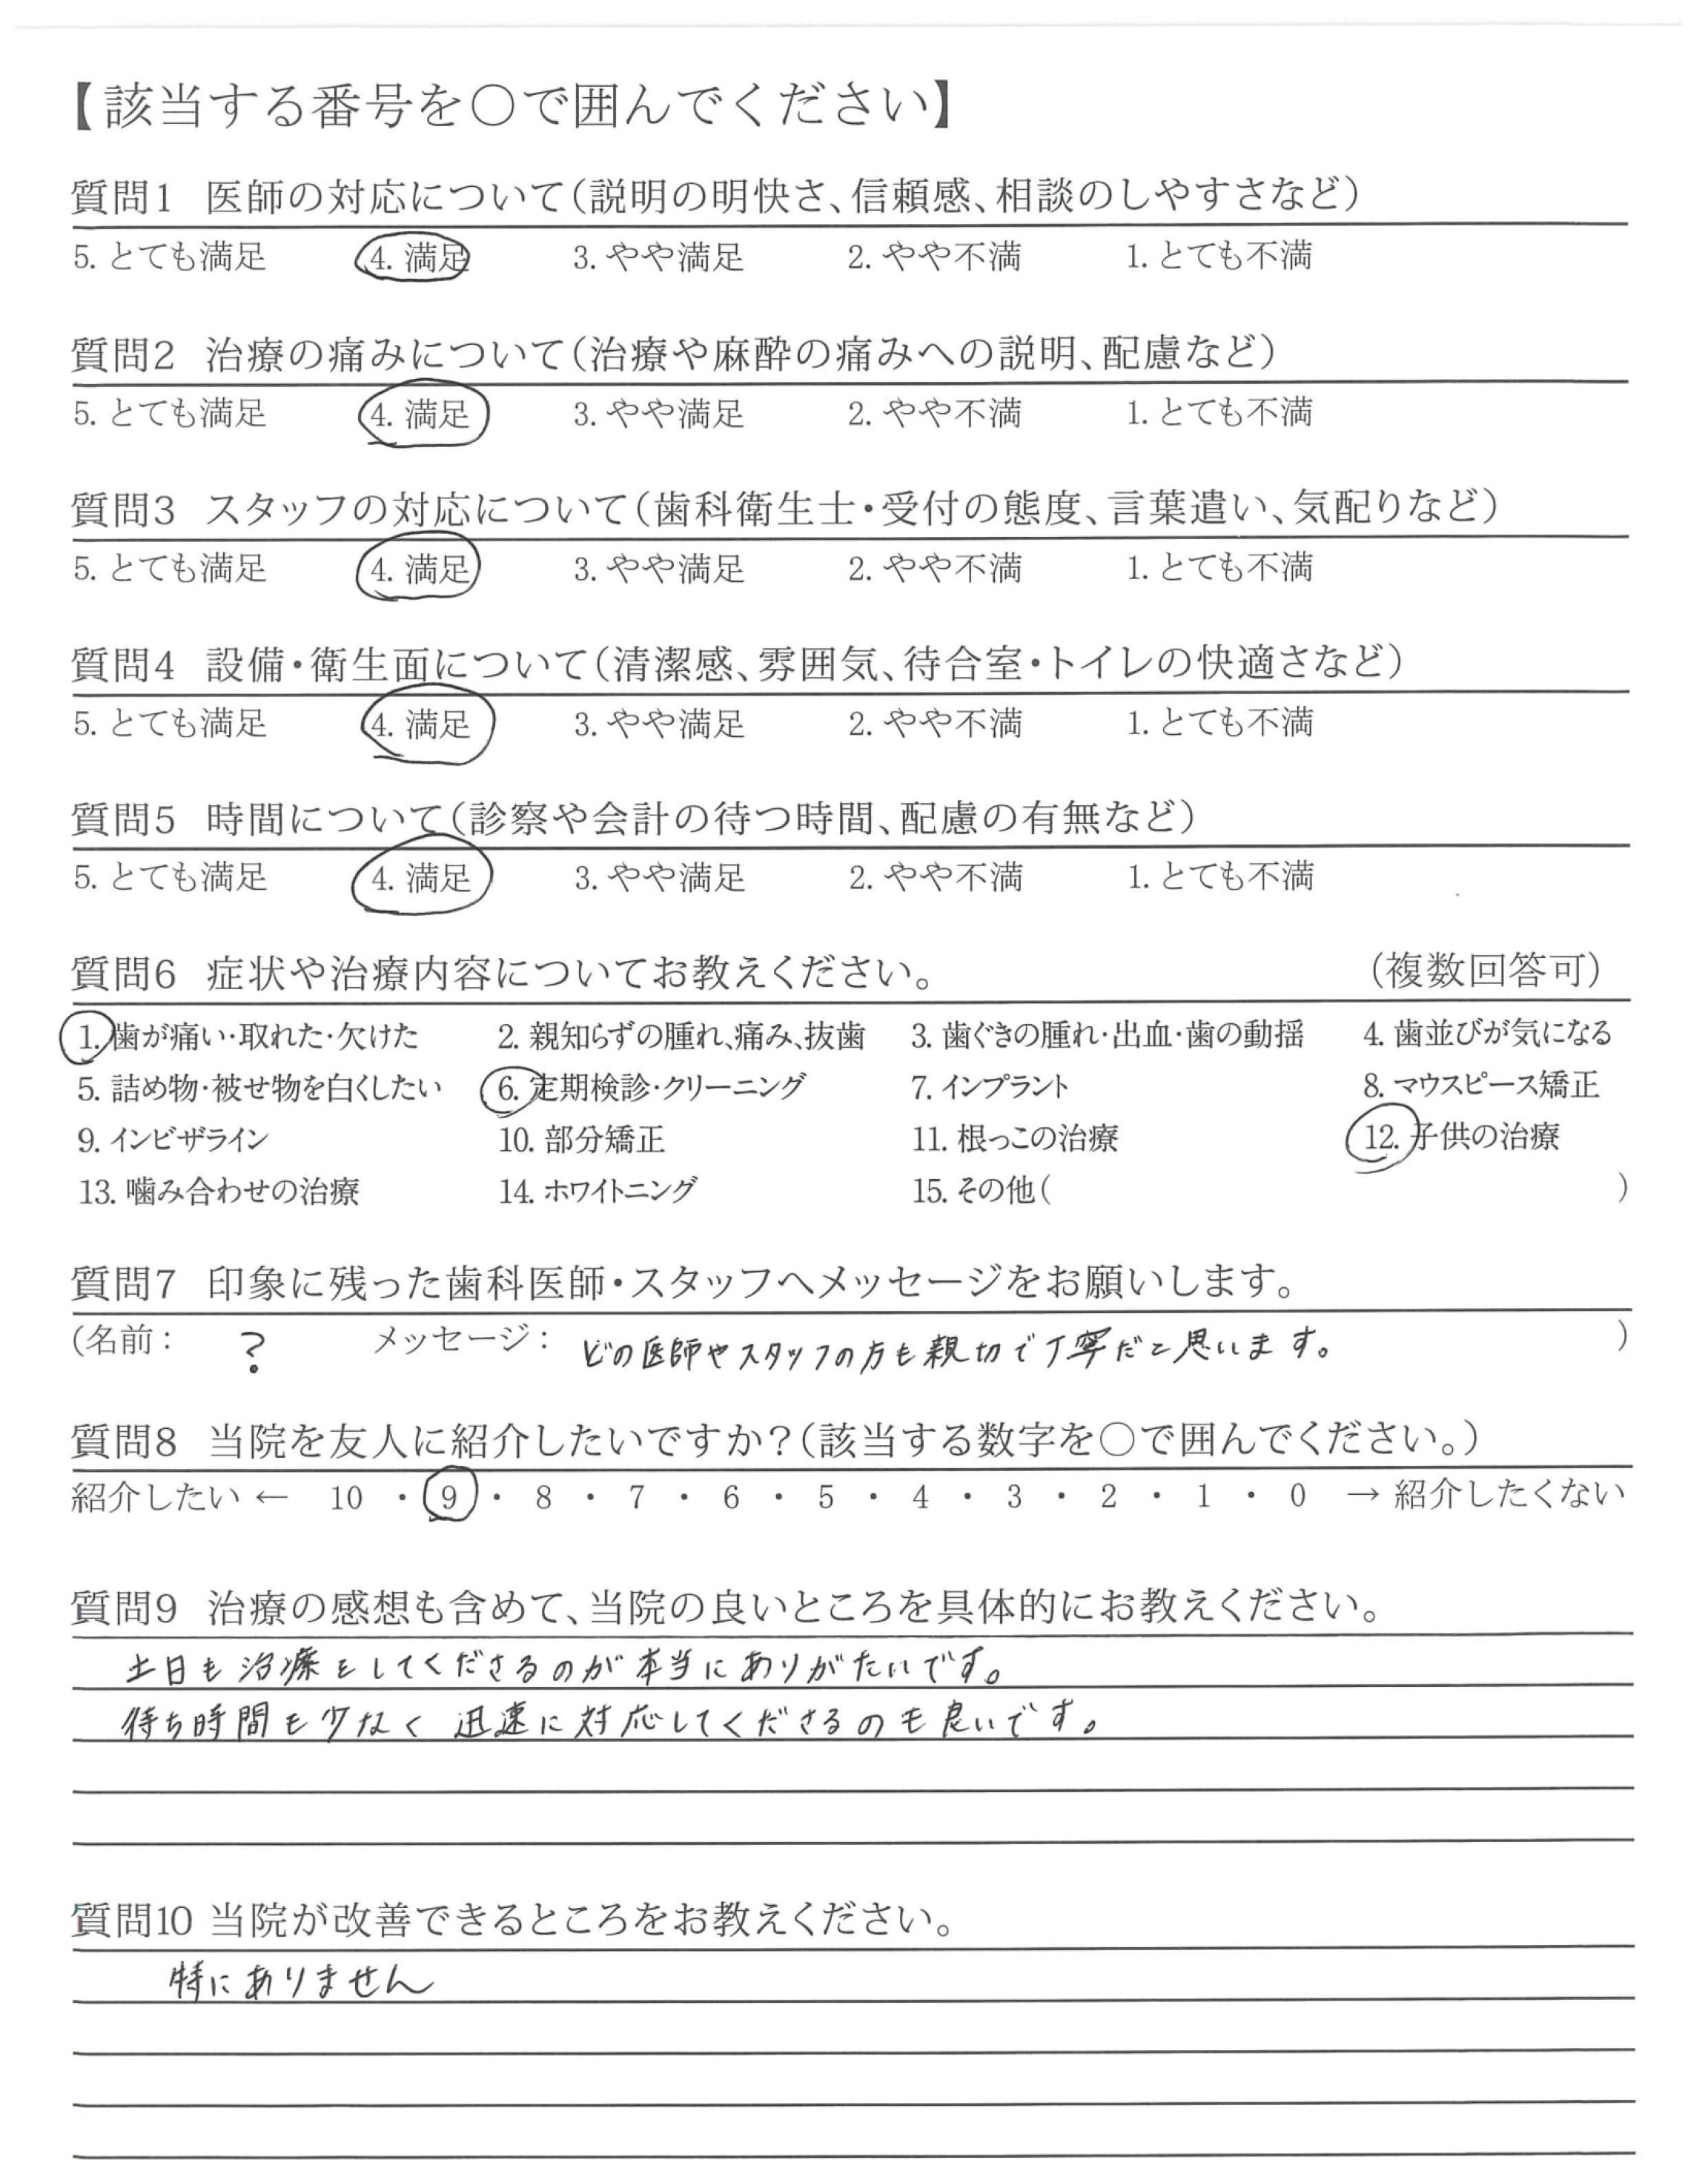 【該当する番号を○で囲んでください】
質問1 医師の対応について（説明の明快さ、信頼感、相談のしやすさなど）
5. とても満足 4. 満足 3. やや満足 2. やや不満 1. とても不満
質問2 治療の痛みについて（治療や麻酔の痛みへの説明、配慮など）
5. とても満足 4. 満足 3. やや満足 2. やや不満 1. とても不満
質問3 スタッフの対応について（歯科衛生士・受付の態度、言葉遣い、気配りなど）
5. とても満足 4. 満足 3. やや満足 2. やや不満 1. とても不満
質問4 設備・衛生面について（清潔感、雰囲気、待合室・トイレの快適さなど）
5. とても満足 4. 満足 3. やや満足 2. やや不満 1. とても不満
質問5 時間について（診察や会計の待つ時間、配慮の有無など）
5. とても満足 4. 満足 3. やや満足 2. やや不満 1. とても不満
質問6 症状や治療内容についてお教えください。 （複数回答可）
1. 歯が痛い・取れた・欠けた 2. 親知らずの腫れ、痛み、抜歯 3. 歯ぐきの腫れ・出血・歯の動揺 4. 歯並びが気になる
5. 詰め物・被せ物を白くしたい 6. 定期検診・クリーニング 7. インプラント 8. マウスピース矯正
9. インビザライン 10. 部分矯正 11. 根っこの治療 12. 子供の治療
13. 噛み合わせの治療 14. ホワイトニング 15. その他（ ）
質問7 印象に残った歯科医師・スタッフへメッセージをお願いします。
（名前： ? メッセージ： どの医師やスタッフの方も親切で丁寧だと思います。 ）
質問8 当院を友人に紹介したいですか？（該当する数字を○で囲んでください。）
紹介したい ← 10 ・ 9 ・ 8 ・ 7 ・ 6 ・ 5 ・ 4 ・ 3 ・ 2 ・ 1 ・ 0 → 紹介したくない
質問9 治療の感想も含めて、当院の良いところを具体的にお教えください。
土日も治療をしてくださるのが本当にありがたいです。
待ち時間も少なく 迅速に対応してくださるのも良いです。
質問10 当院が改善できるところをお教えください。
特にありません